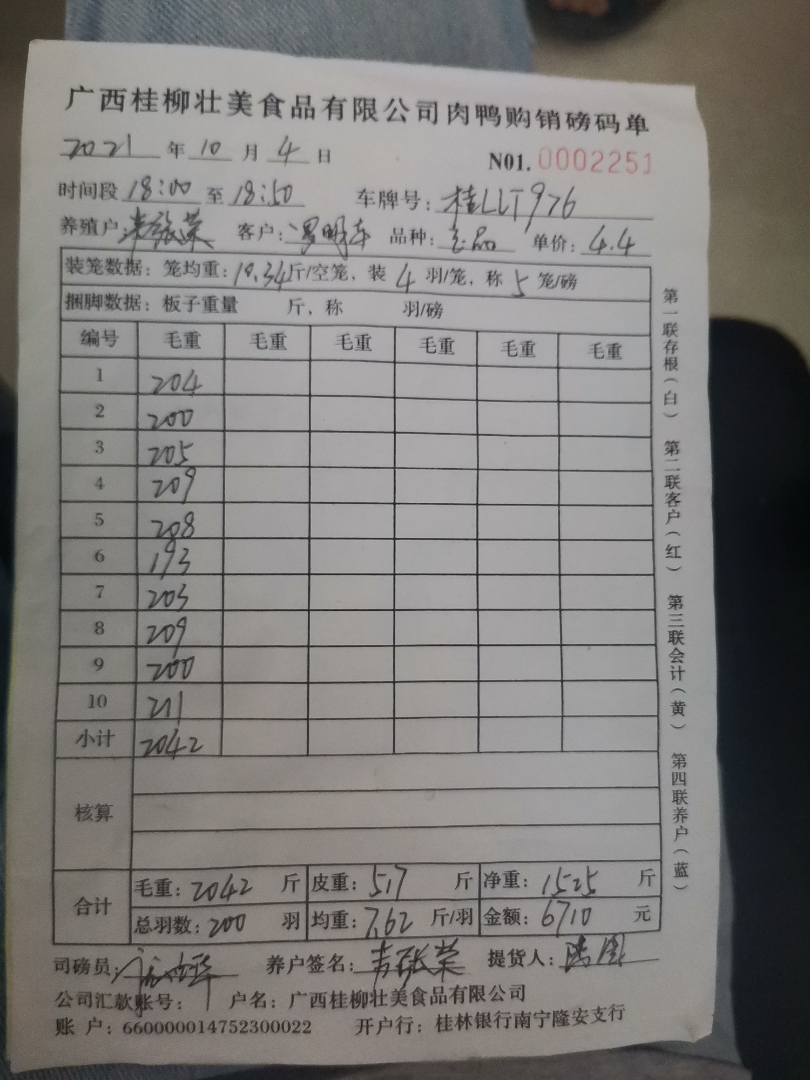 广西桂柳壮美食品有限公司肉鸭购销磅码单
2021 年 10 月 4 日 N01. 0002251
时间段 18:00 至 18:50 车牌号: 桂LLT976
养殖户: 客户: 品种: 单价: 4.4
装笼数据: 笼均重: 10.34 斤/空笼, 装 4 羽/笼, 称 5 笼/磅
捆脚数据: 板子重量 斤, 称 羽/磅
编号 毛重 毛重 毛重 毛重 毛重 毛重
1 204
2 200
3 205
4 209
5 208
6 193
7 203
8 209
9 200
10 211
小计 2042
核算
合计 毛重: 2042 斤 皮重: 517 斤 净重: 1525 斤
总羽数: 200 羽 均重: 7.62 斤/羽 金额: 6710 元
司磅员: 养户签名: 提货人:
公司汇款账号: 户名: 广西桂柳壮美食品有限公司
账 户: 660000014752300022 开户行: 桂林银行南宁隆安支行
第一联存根(白) 第二联客户(红) 第三联会计(黄) 第四联养户(蓝)